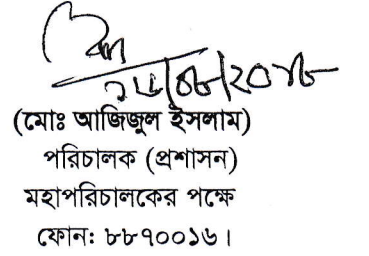 (মোঃ আজিজুল ইসলাম)
পরিচালক (প্রশাসন)
মহাপরিচালকের পক্ষে
ফোন: ৮৮৭০০১৬।